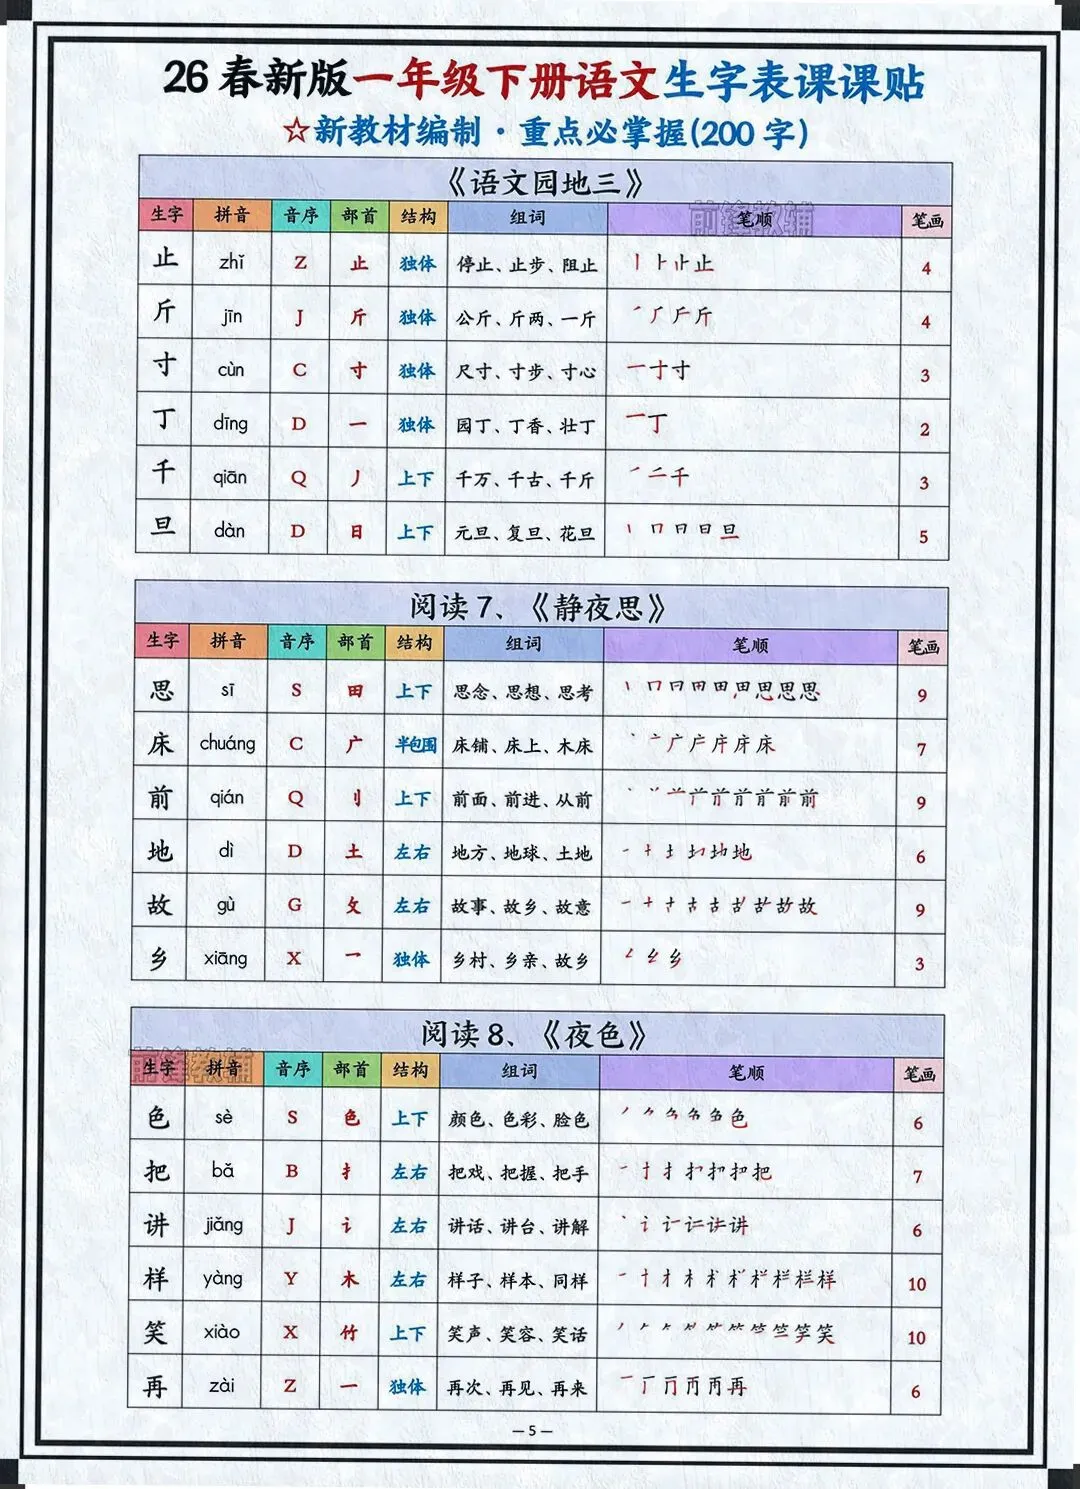 26春新版一年级下册语文生字表课课贴
☆新教材编制·重点必掌握(200字)
《语文园地三》
生字 拼音 音序 部首 结构 组词 笔顺 笔画
前锋教辅
止 zhǐ Z 止 独体 停止、止步、阻止 丨⺊止止 4
斤 jīn J 斤 独体 公斤、斤两、一斤 ㇒厂斤斤 4
寸 cùn C 寸 独体 尺寸、寸步、寸心 一寸寸 3
丁 dīng D 一 独体 园丁、丁香、壮丁 一丁 2
千 qiān Q 丿 上下 千万、千古、千斤 ㇒二千 3
旦 dàn D 日 上下 元旦、复旦、花旦 丨冂日日旦 5
阅读7、《静夜思》
生字 拼音 音序 部首 结构 组词 笔顺 笔画
思 sī S 田 上下 思念、思想、思考 9
床 chuáng C 广 半包围 床铺、床上、木床 7
前 qián Q 刂 上下 前面、前进、从前 9
地 dì D 土 左右 地方、地球、土地 6
故 gù G 攵 左右 故事、故乡、故意 9
乡 xiāng X 乛 独体 乡村、乡亲、故乡 3
阅读8、《夜色》
生字 拼音 音序 部首 结构 组词 笔顺 笔画
前锋教辅
色 sè S 色 上下 颜色、色彩、脸色 6
把 bǎ B 扌 左右 把戏、把握、把手 7
讲 jiǎng J 讠 左右 讲话、讲台、讲解 6
样 yàng Y 木 左右 样子、样本、同样 10
笑 xiào X 竹 上下 笑声、笑容、笑话 10
再 zài Z 一 独体 再次、再见、再来 6
— 5 —